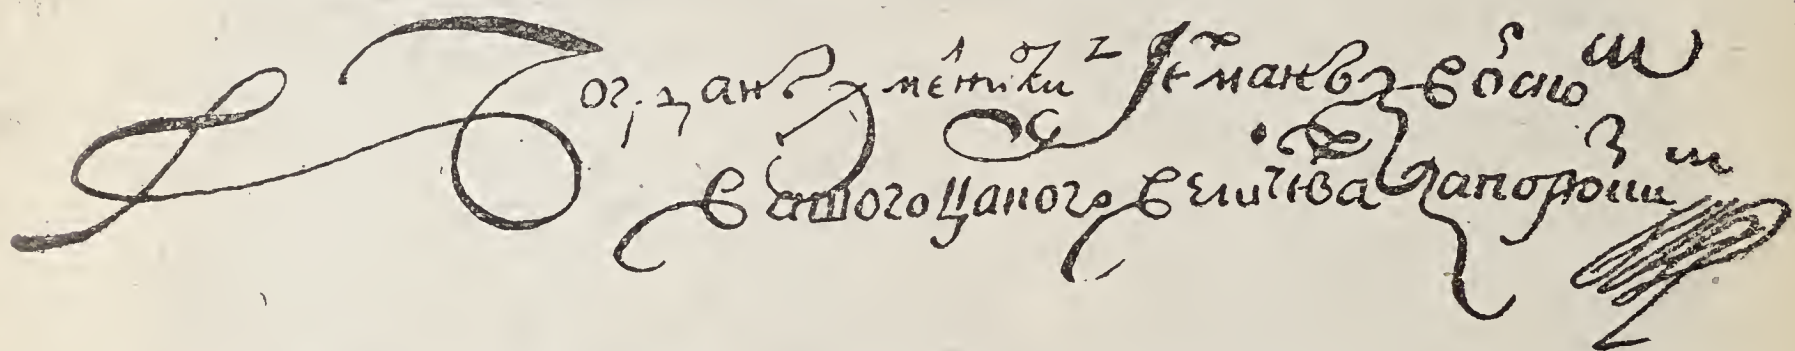 Богданъ Хмелницкий Гетманъ Войском
Вашого Цаного Величества Запорозким